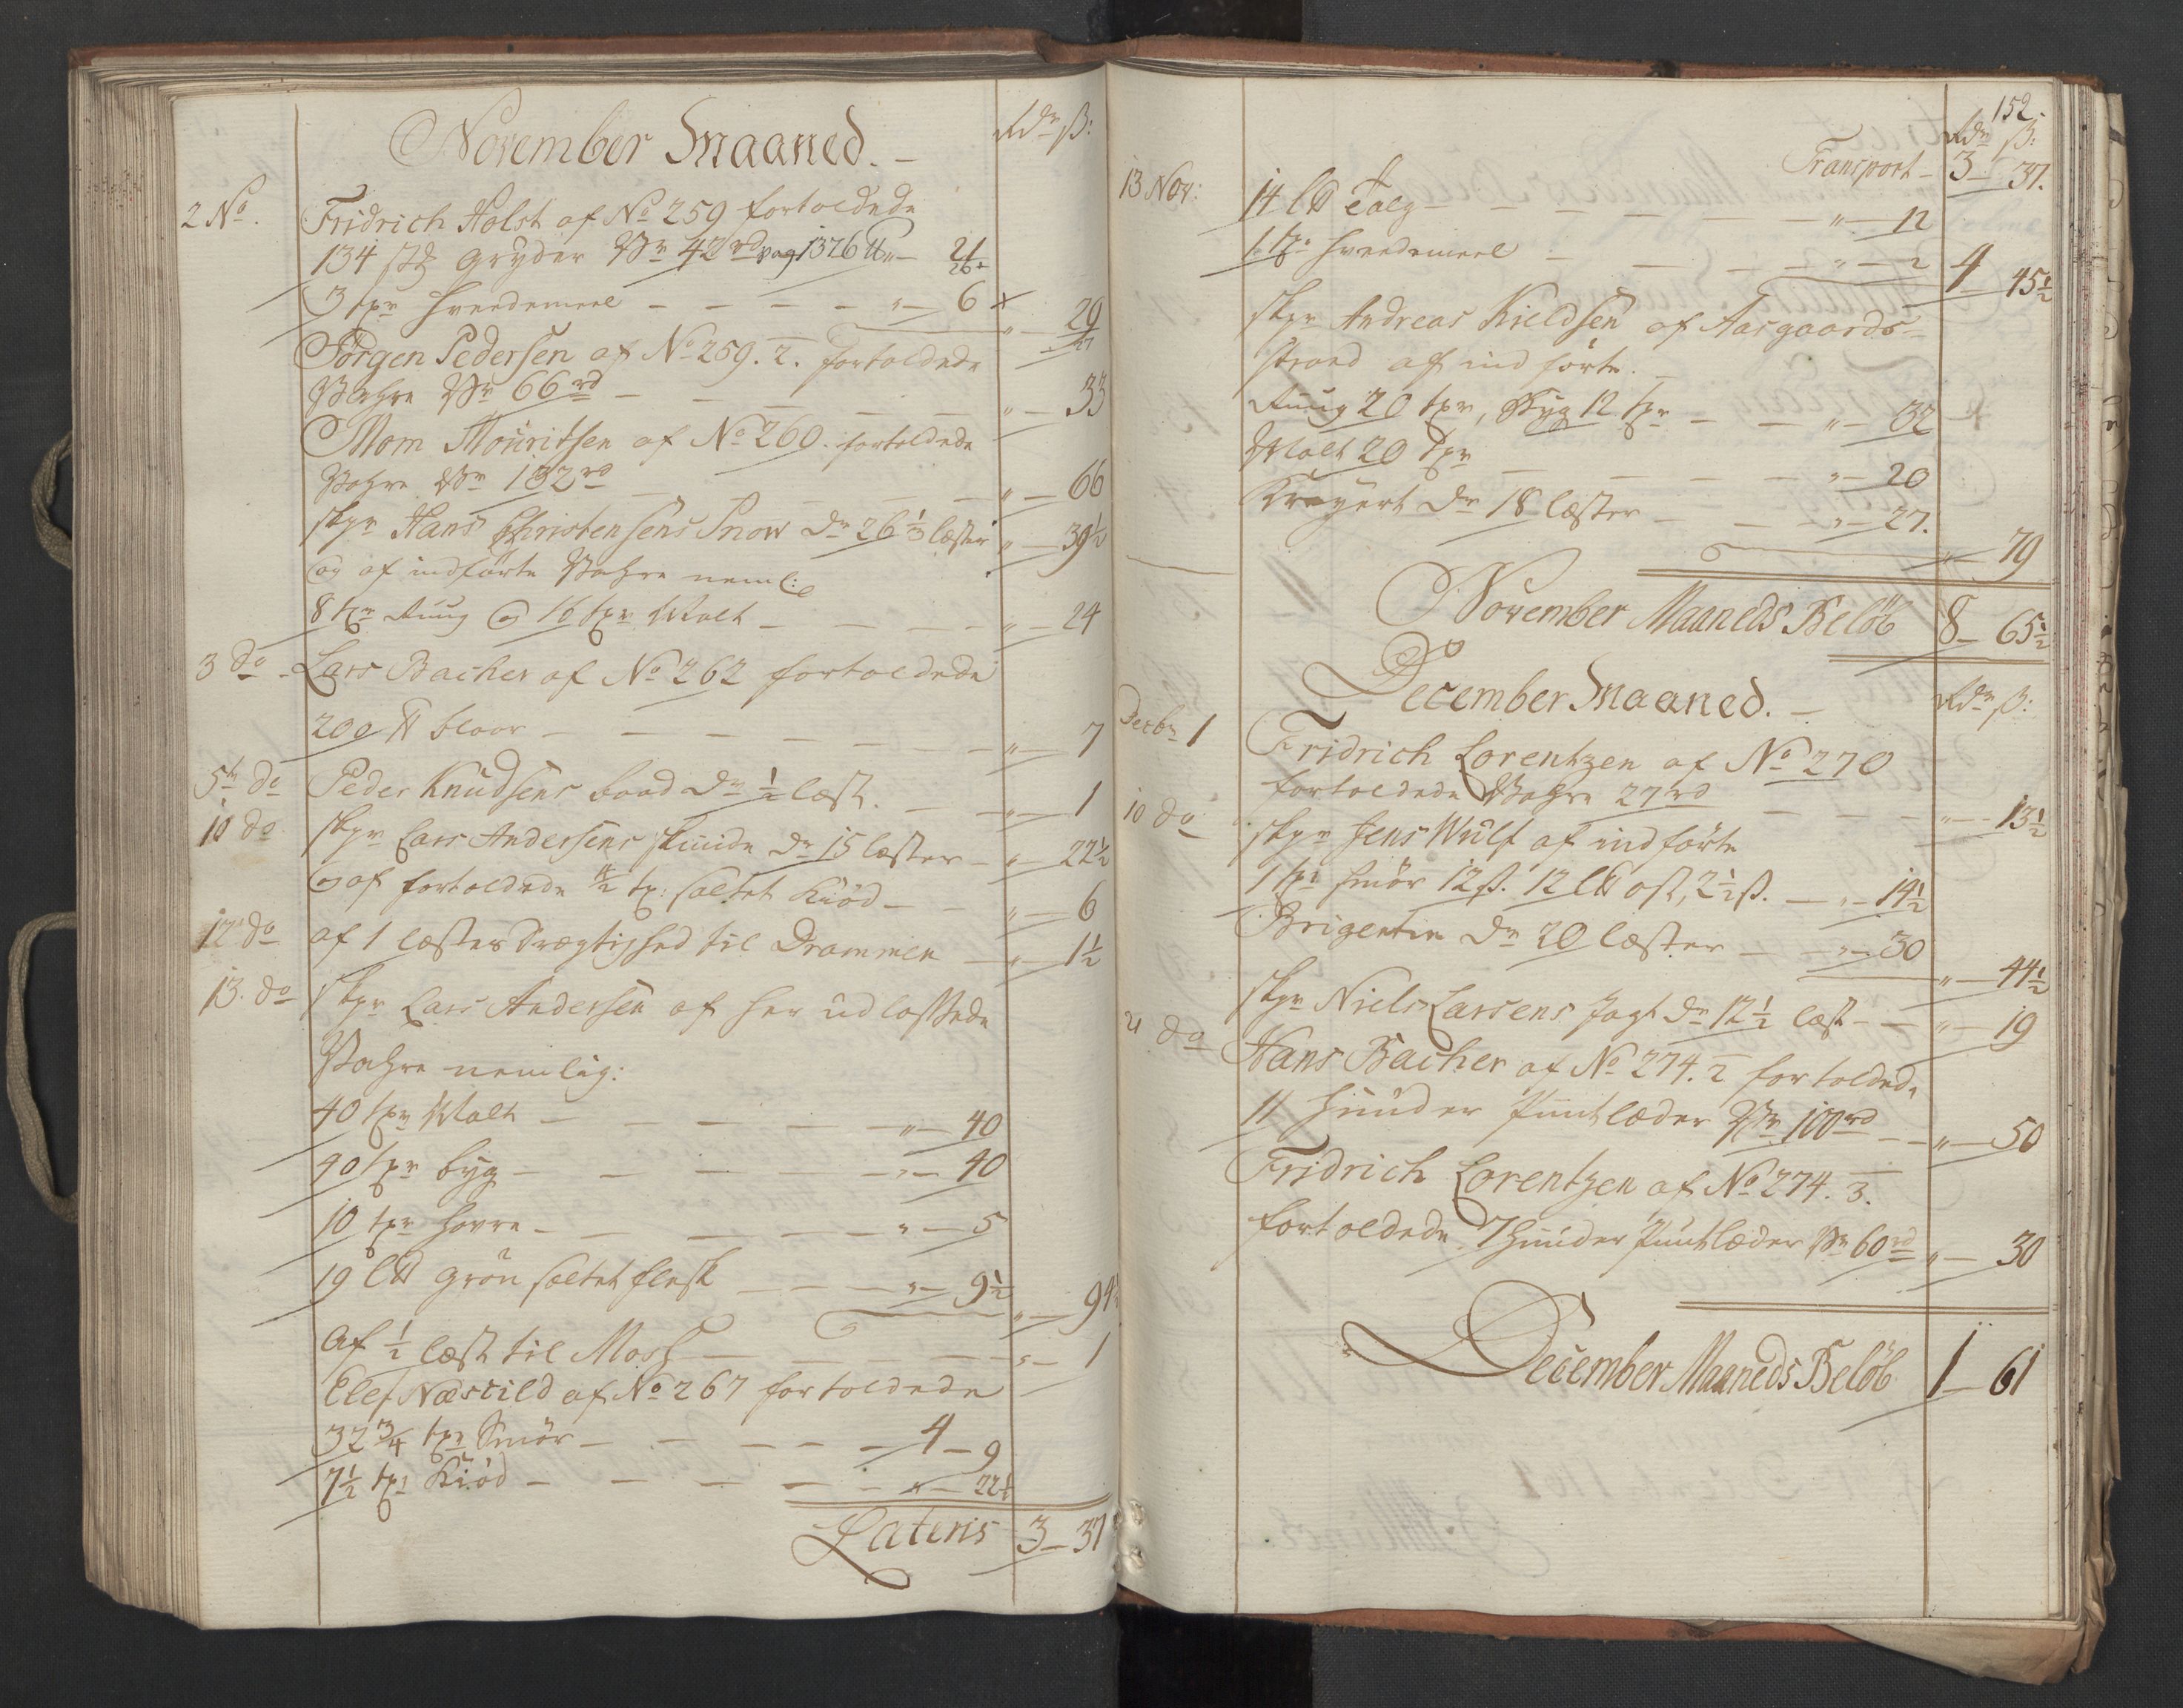 November Maaned.
Rdr ß:
2 No. Fridrich Holst af No 259 fortoldede
134 stk gryder Wr 42 rd vog 1326 ℔ " 21
26
3 tpr Hvedemeel " 6
" 29
27
Jörgen Pedersen af No 259. 2. fortoldede
Wahre Wr 66 rd " 33
Mom Mouritsen af No 260. fortoldede
Wahre Wr 132 rd " 66
skpr Hans Christensens Snow dr 26 1/3 læster " 39 1/2
og af indförte Wahre neml:
8 tpr Rug og 16 tpr Malt " 24
3 do Lars Bacher af No 262 fortoldede
200 ℔ blaar " 7
5te do Peder Knudsens baad dr 1/2 læst. " 1
10 do skpr Lars Andersens skuude dr 15 læster " 22 1/2
og af fortoldede tp: saltet Kiöd " 6
12 do af 1 læsters Drægtighed til Drammen " 1 1/2
13. do skpr Lars Andersen af her udlossede
Wahre nemlig:
40 tpr Malt " 40
40 tpr byg " 40
10 tpr havre " 5
19 L℔ grön saltet flesk " 9 1/2
" 94
Af 1/2 læst til Moss " 1
Elef Næscild af No 267 fortoldede
32 3/4 tpr Smör 4 - 9
7 1/2 tpr Kiöd " 22 1/2
Lateris 3 - 37
152.
Rdr ß:
Transport 3 37.
13 Nov: 14 L℔ Talg " 12
1 tp: Hvedemeel " 2
4 45 1/2
skpr Andreas Kieldsen af Aasgaards-
strand af indförte.
Ruug 20 tpr, Byg 12 tpr " 32
Malt 20 tpr " 20
Kreyert dr 18 læster " 27.
" 79
November Maaneds Belöb 8 - 65 1/2
December Maaned.
Rdr ß:
Decbr 1 Fridrich Lorentzen af No 270
fortoldede Wahre 27 rd " 13 1/2
10 do skpr Jens Wulf af indförte
1 tp: smör 12 ß. 12 L℔ ost, 2 1/2 ß. " 14 1/2
Brigentin dr 20 læster " 30
" 44 1/2
skpr Niels Larsens Jagt dr 12 1/2 læst " 19
21 do Hans Bacher af No 274. 2 fortoldede
11 Huuder Puntlæder Wr 100 rd " 50
Fridrich Lorentzen af No 274. 3.
fortoldede 7 Huuder Puntlæder Wr 60 rd " 30
December Maaneds Belöb 1 - 61